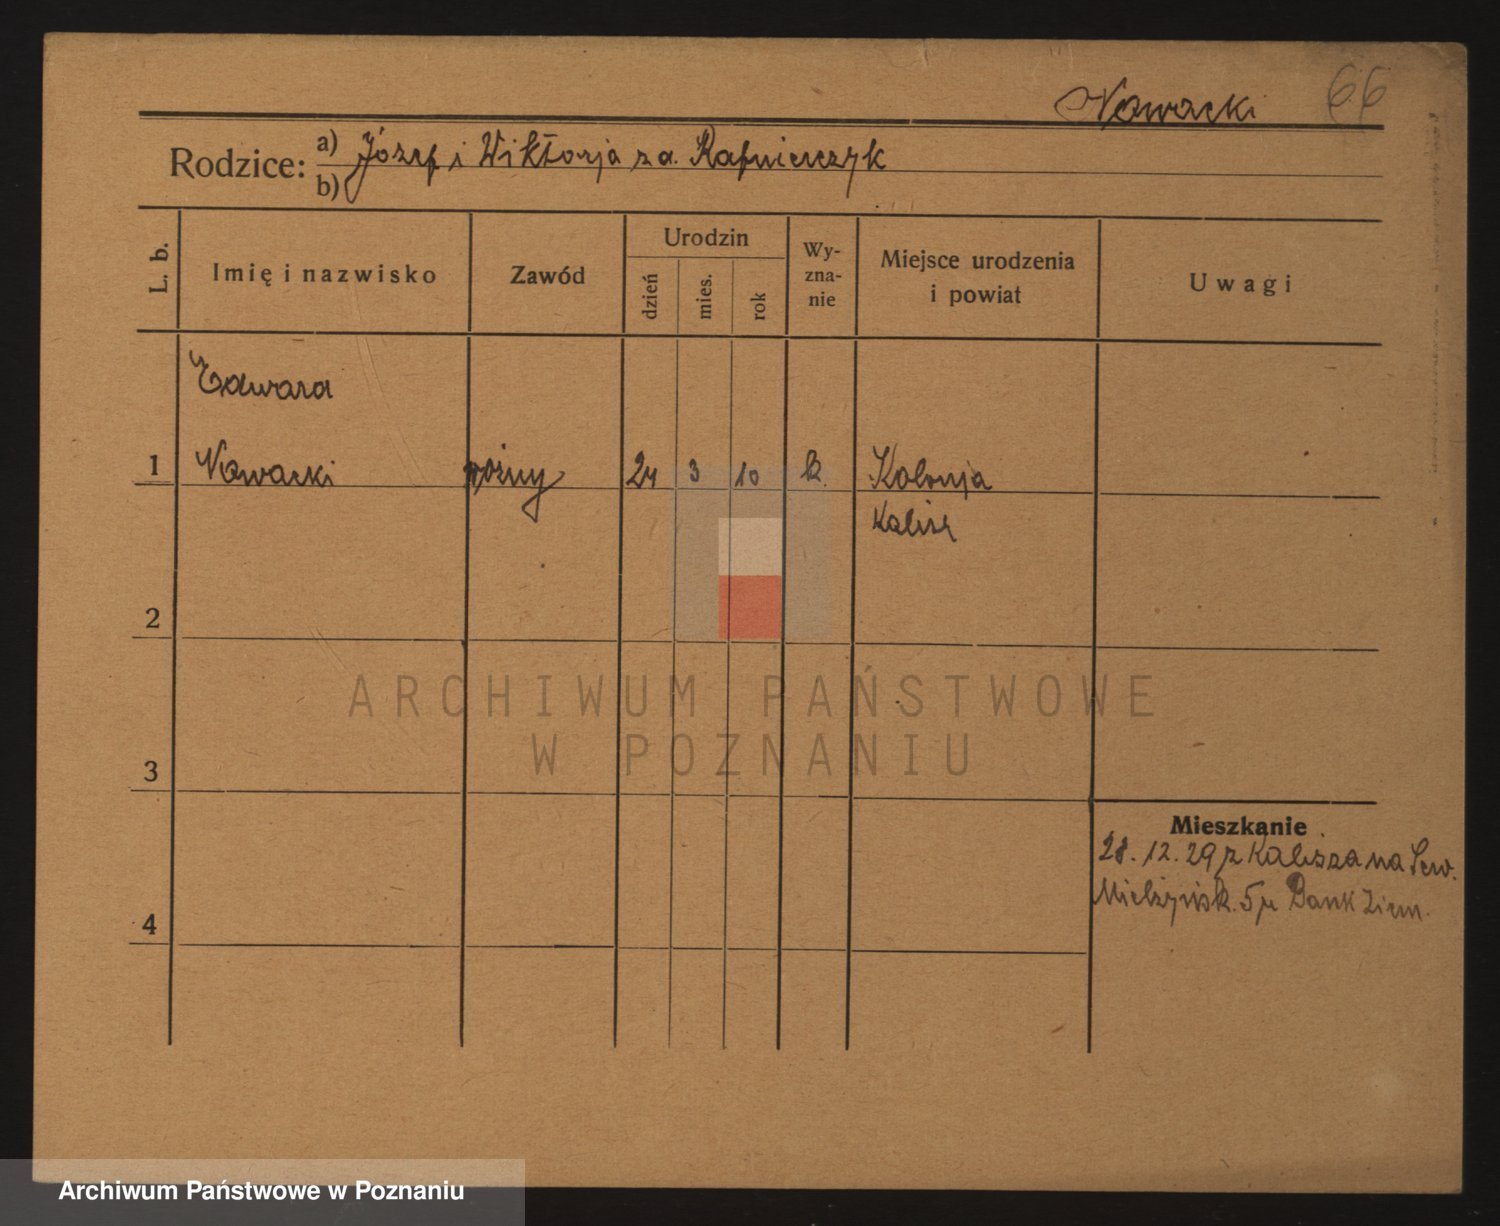 Nowacki 66
Rodzice: a) Józef i Wiktorja z d.
b)
L. b.
Imię i nazwisko
Zawód
Urodzin
dzień
mies.
rok
Wy-
zna-
nie
Miejsce urodzenia
i powiat
Uwagi
Edward
1 Nowacki woźny 24 3 10 k. Kolonja
Kalisz
2
ARCHIWUM PAŃSTWOWE
W POZNANIU
3
Mieszkanie
28. 12. 29 z Kalisza na Sew.
Mielżyńsk. 5 u Bank Ziem.
4
Archiwum Państwowe w Poznaniu